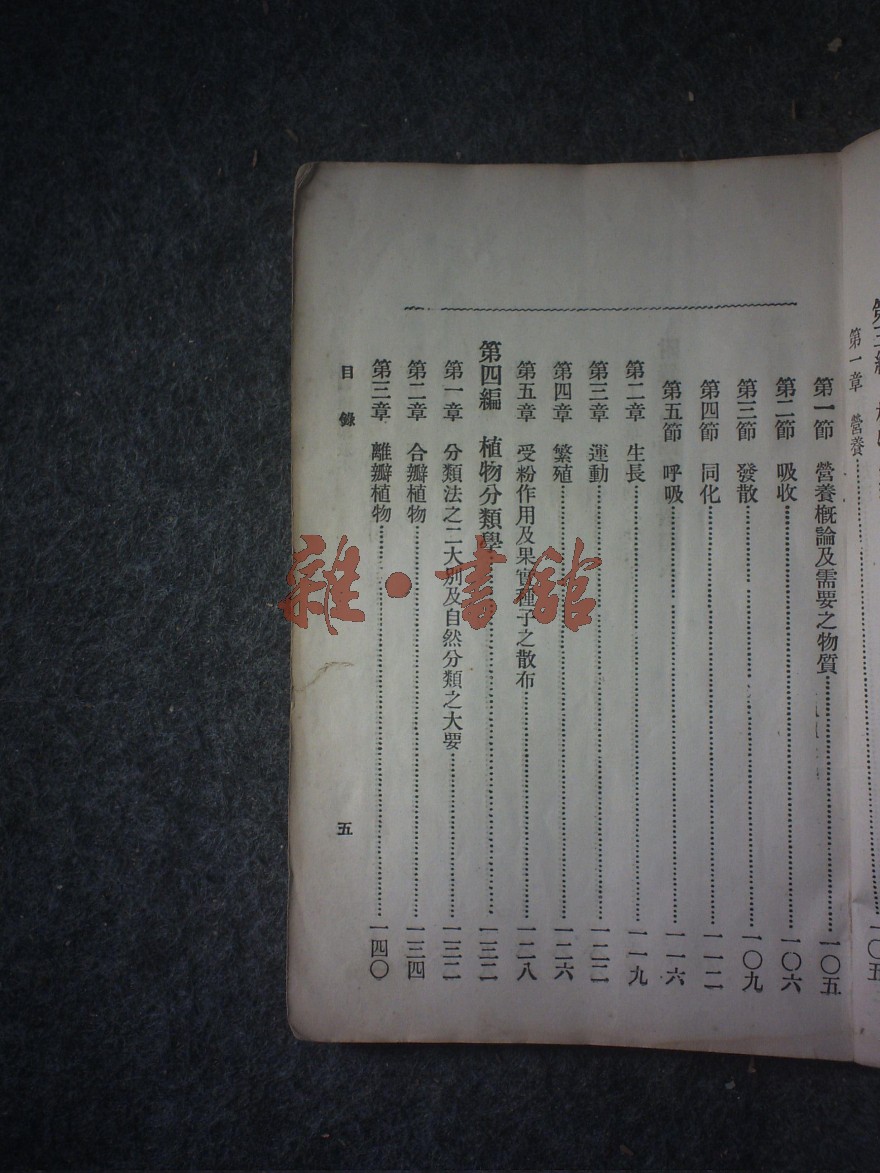 第一章 營養 一〇五
第一節 營養概論及需要之物質 一〇五
第二節 吸收 一〇六
第三節 發散 一〇九
第四節 同化 一一二
第五節 呼吸 一一六
第二章 生長 一一九
第三章 運動 一二二
第四章 繁殖 一二六
第五章 受粉作用及果實種子之散布 一二八
第四編 植物分類學 一三二
第一章 分類法之二大別及自然分類之大要 一三二
第二章 合瓣植物 一三四
第三章 離瓣植物 一四〇
目錄
五
雜·書館